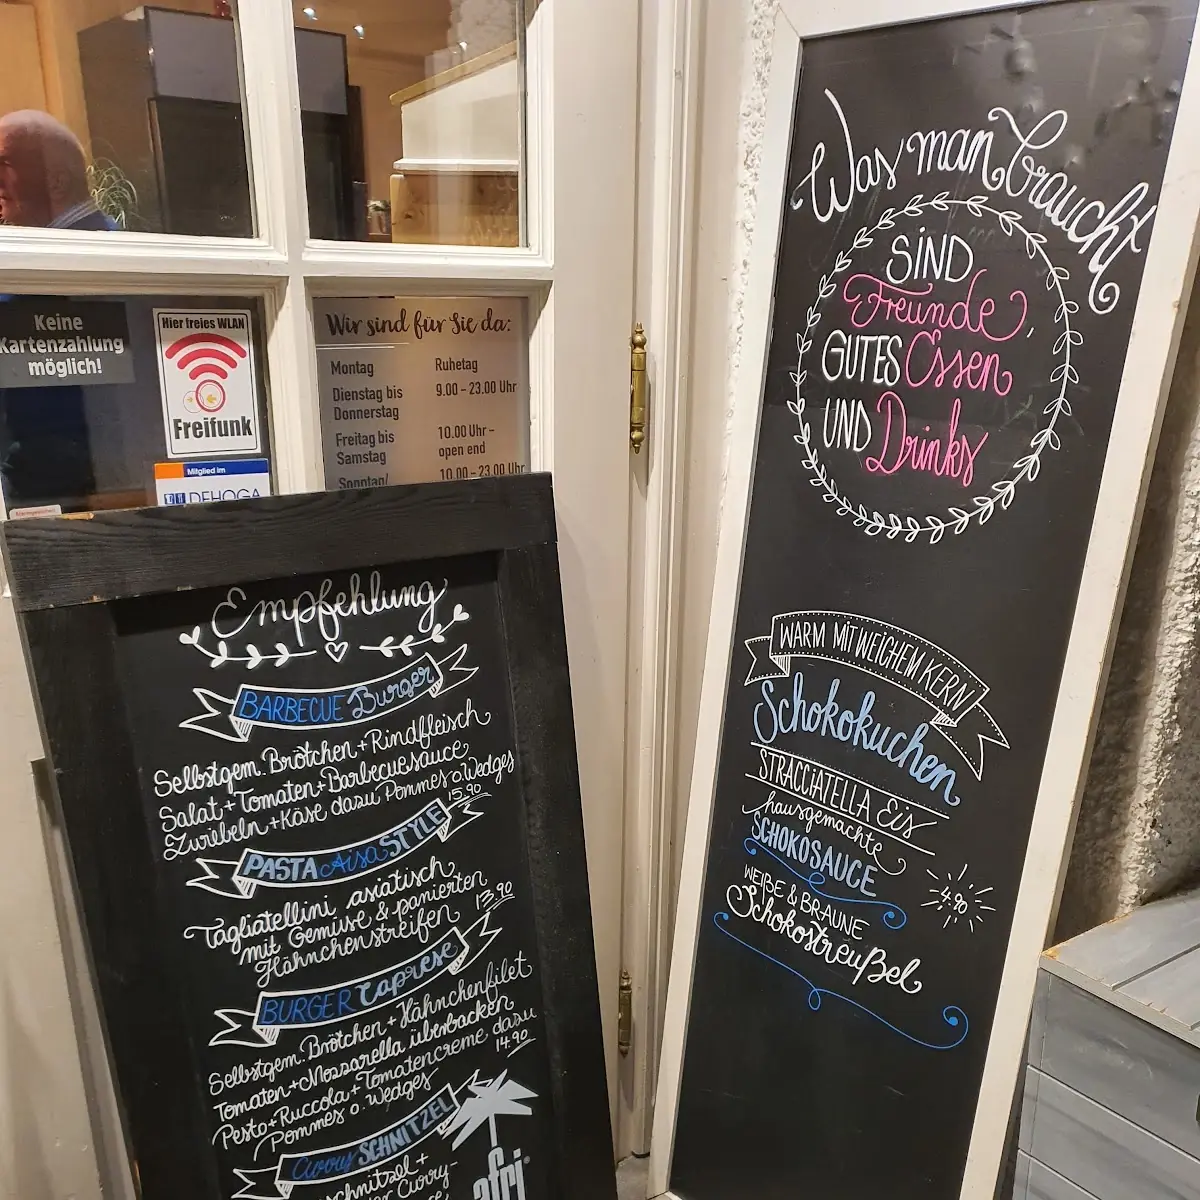 Keine
Kartenzahlung
möglich!
Hier freies WLAN
Freifunk
Mitglied im
DEHOGA
Wir sind für Sie da:
Montag Ruhetag
Dienstag bis 9.00 – 23.00 Uhr
Donnerstag
Freitag bis 10.00 Uhr –
Samstag open end
Sonntag/ 10.00 – 23.00 Uhr
Empfehlung
BARBECUE Burger
Selbstgem. Brötchen + Rindfleisch
Salat + Tomaten + Barbecuesauce
Zwiebeln + Käse dazu Pommes o. Wedges
15.90
PASTA Aisa STYLE
Tagliatellini asiatisch
mit Gemüse & panierten
Hähnchenstreifen 13.90
BURGER Caprese
Selbstgem. Brötchen + Hähnchenfilet
Tomaten + Mozzarella überbacken
Pesto + Ruccola + Tomatencreme dazu
Pommes o. Wedges 14.90
Curry SCHNITZEL
schnitzel +
Curry-
afri
Was man braucht
SIND
Freunde,
GUTES Essen
UND Drinks
WARM MIT WEICHEM KERN
Schokokuchen
STRACCIATELLA Eis
hausgemachte
SCHOKOSAUCE
4.90
WEIßE & BRAUNE
Schokostreußel